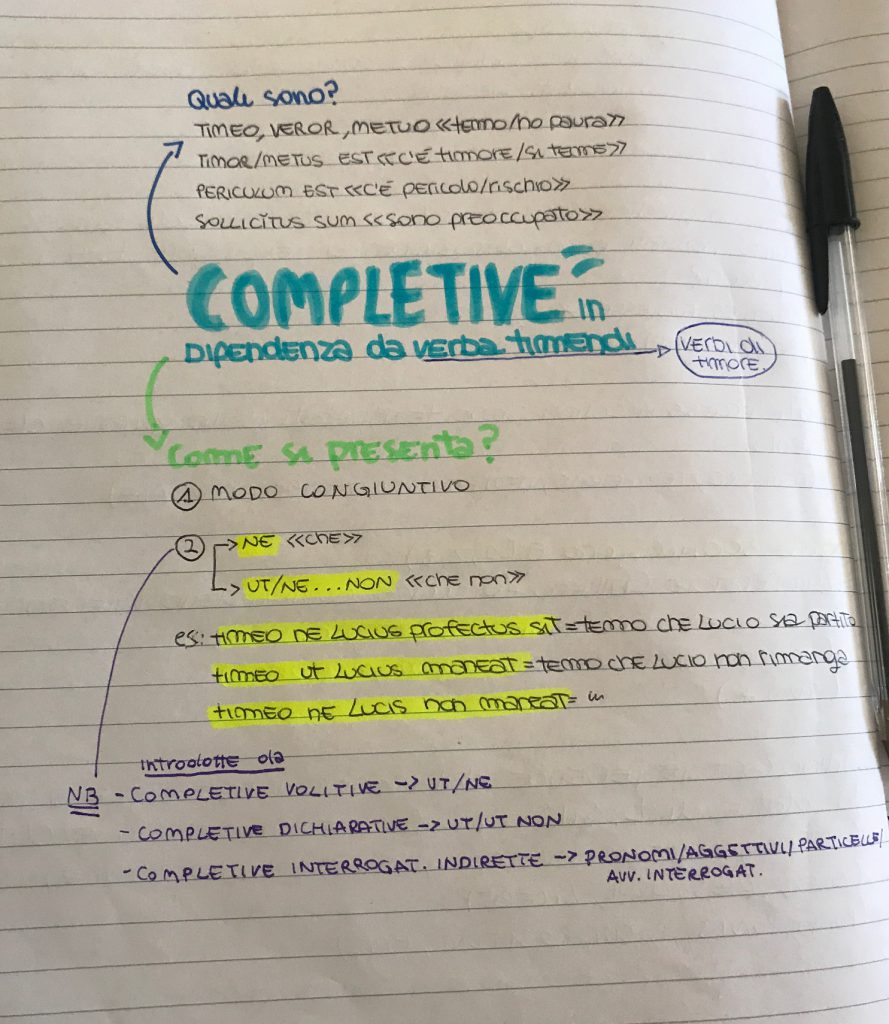 Quali sono?
TIMEO, VEROR, METUO «temo/ho paura»
TIMOR/METUS EST «C'É timore/si teme»
PERICULUM EST «C'É pericolo/rischio»
SOLLICITUS SUM «sono preoccupato»
COMPLETIVE in
Dipendenza da verba timendi → VERBI di timore.
Come si presenta?
1 MODO CONGIUNTIVO
2 → NE «che»
→ UT/NE...NON «che non»
es: timeo ne Lucius profectus sit = temo che Lucio sia partito
timeo ut Lucius maneat = temo che Lucio non rimanga
timeo ne Lucis non maneat = "
introdotte da
NB - COMPLETIVE VOLITIVE → UT/NE
- COMPLETIVE DICHIARATIVE → UT/UT NON
- COMPLETIVE INTERROGAT. INDIRETTE → PRONOMI/AGGETTIVI/PARTICELLE/
AVV. INTERROGAT.